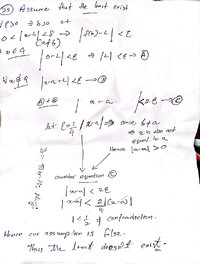 (25) Assume that the limit exist
∀ε>0 ∃ δ>0 s.t
0<|x-a|<δ ⇒ |f(x)-L|<ε
(x≠a)
x∈Q |0-L|<ε ⇒ |L|<ε → Ⓐ
x∉Q |x-a-L|<ε → Ⓑ
Ⓐ+Ⓑ |x-a|<2ε → Ⓒ
let ε = 1/4 |x-a| → since
x is also not
equal to a
Hence |x-a|>0
consider equation Ⓒ
|x-a| < 2ε
|x-a| < 2/4 |x-a|
1 < 1/2 # contradiction.
Hence our assumption is false.
Thus the limit doesn't exist.